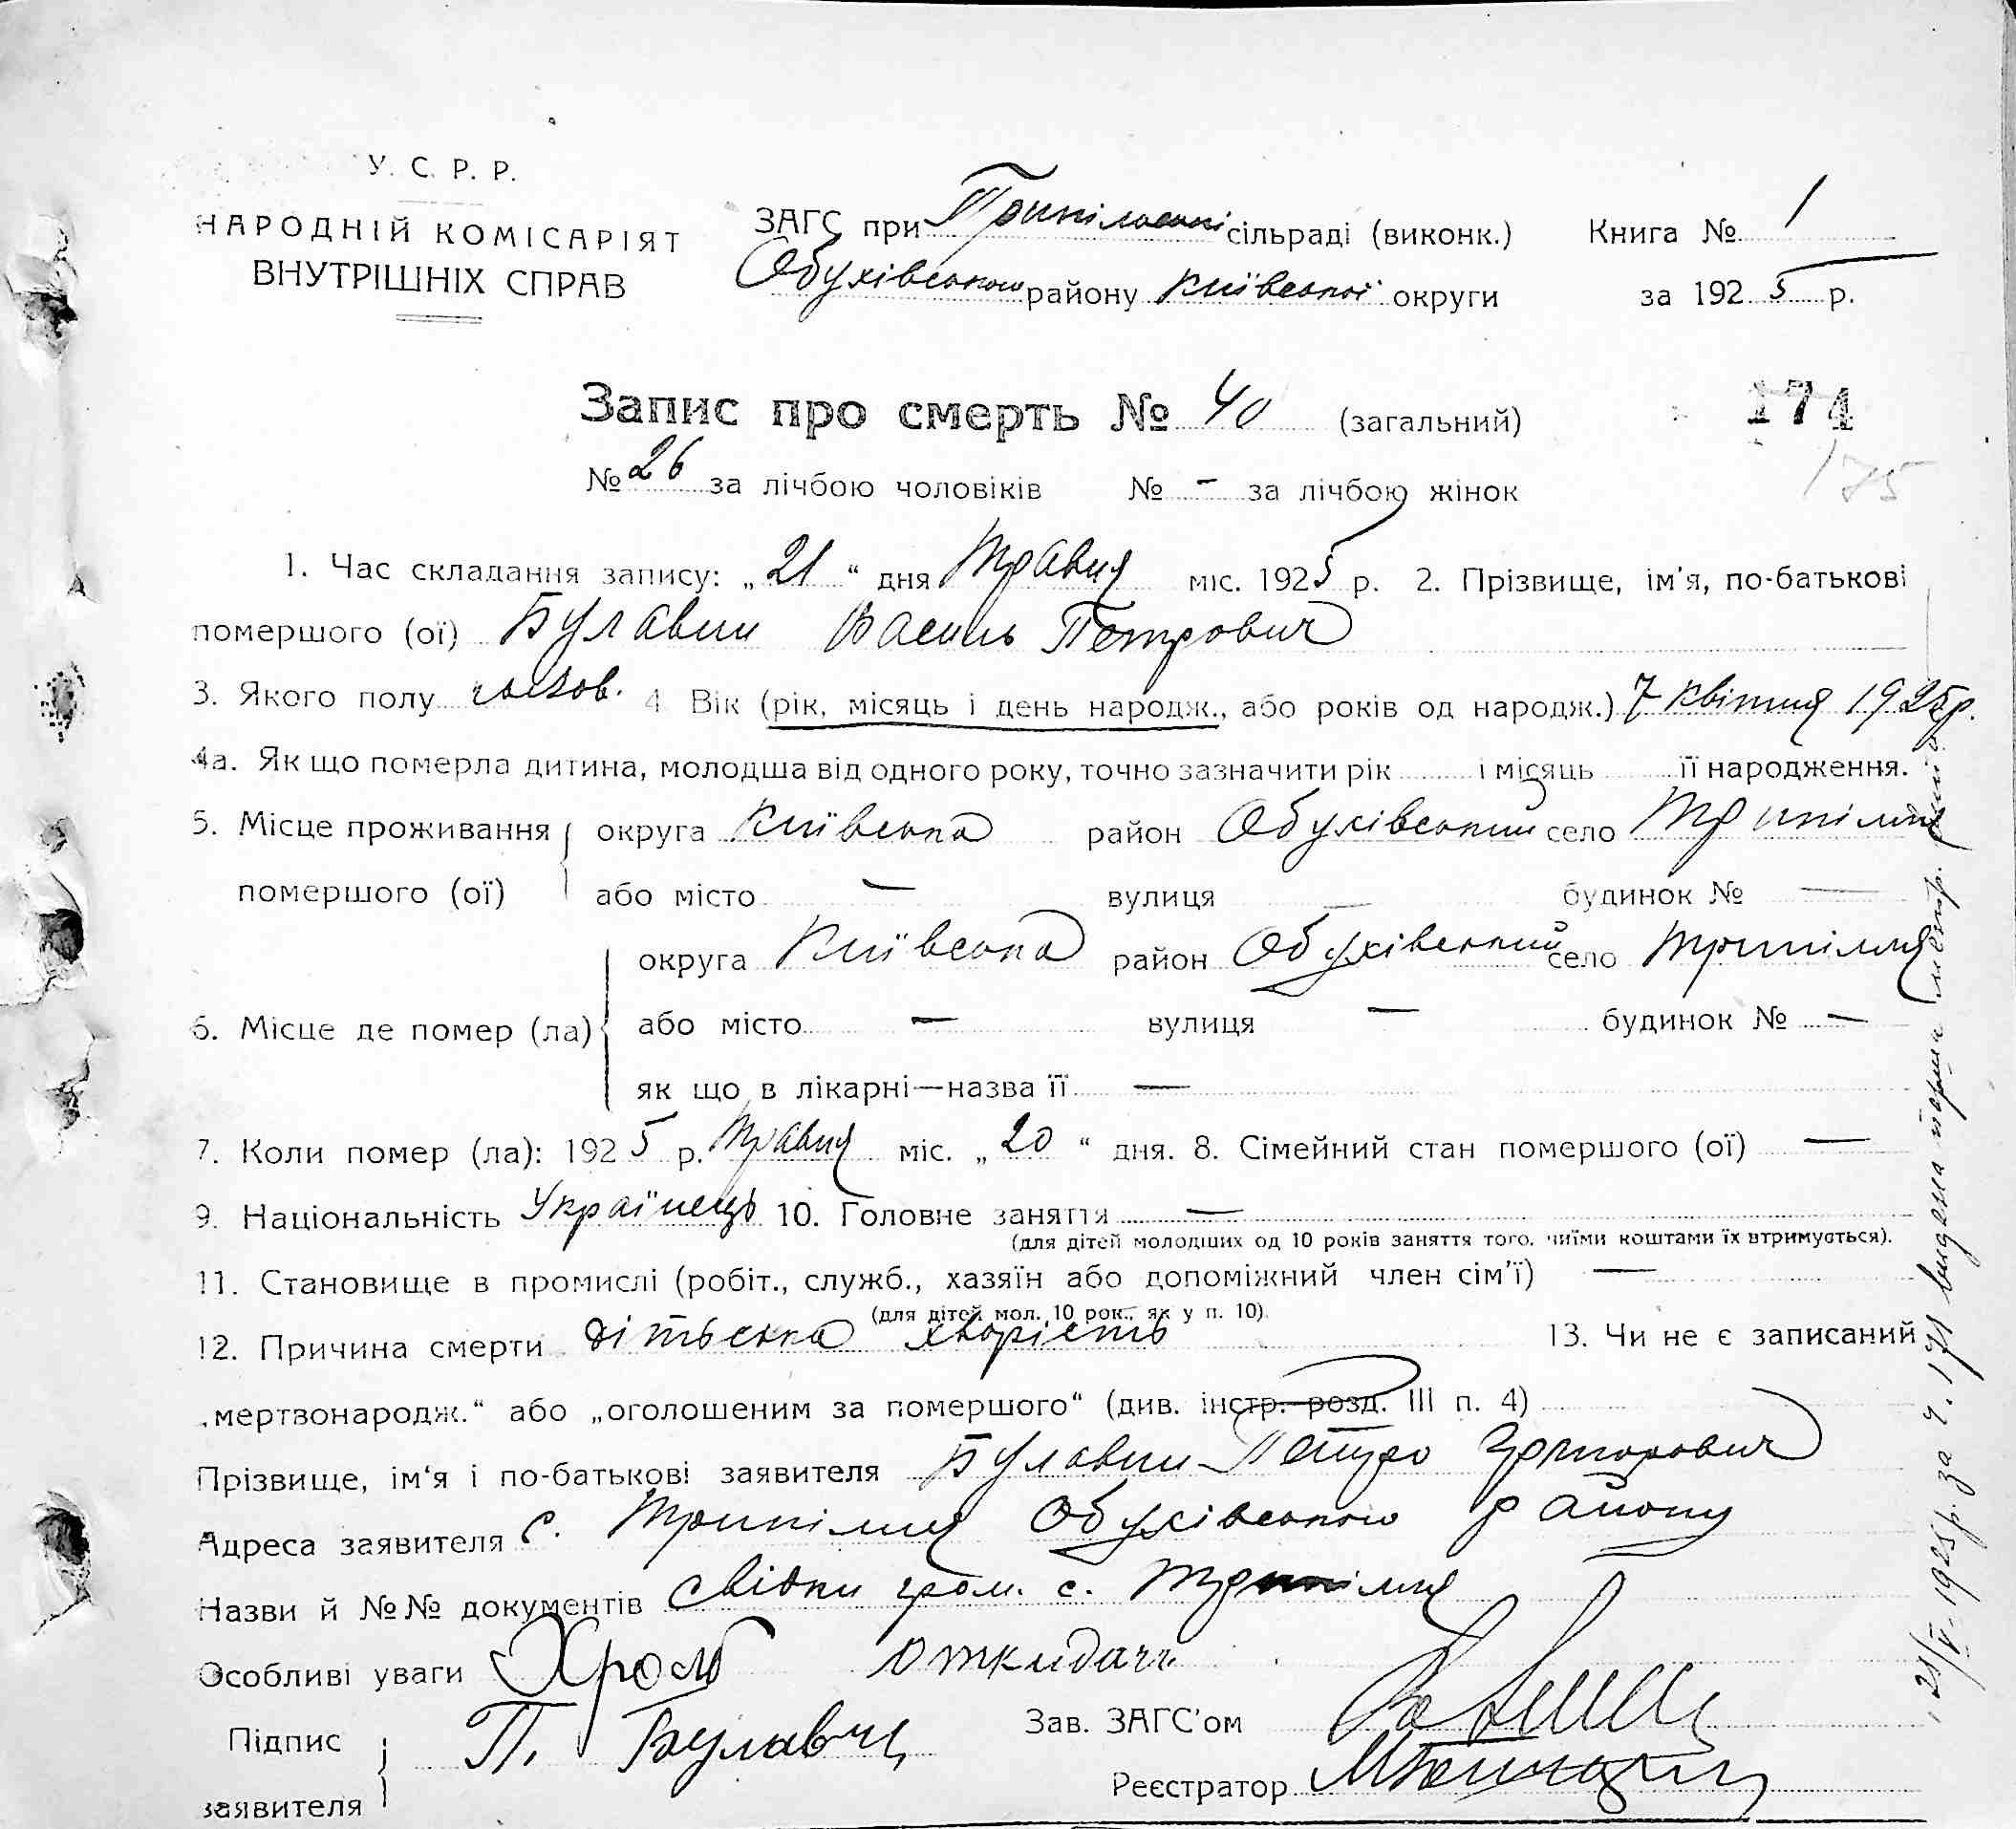 У. С. Р. Р.
НАРОДНІЙ КОМІСАРІЯТ
ВНУТРІШНІХ СПРАВ
ЗАГС при Трипільській сільраді (виконк.) Книга № 1
Обухівського району Київської округи за 1925 р.
Запис про смерть № 40 (загальний) 174
175
№ 26 за лічбою чоловіків № - за лічбою жінок
1. Час складання запису: „21“ дня Травня міс. 1925 р. 2. Прізвище, ім'я, по-батькові
помершого (ої) Булавин Василь Петрович
3. Якого полу чолов. 4 Вік (рік, місяць і день народж., або років од народж.) 7 квітня 1925 р.
4а. Як що померла дитина, молодша від одного року, точно зазначити рік і місяць її народження.
5. Місце проживання округа Київська район Обухівський село Трипілля
помершого (ої) або місто — вулиця — будинок № —
округа Київська район Обухівський село Трипілля
6. Місце де помер (ла) або місто — вулиця — будинок № —
як що в лікарні—назва її —
7. Коли помер (ла): 1925 р. Травня міс. „20“ дня. 8. Сімейний стан помершого (ої) —
9. Національність Українець 10. Головне заняття —
(для дітей молодших од 10 років заняття того, чиїми коштами їх втримується).
11. Становище в промислі (робіт., служб., хазяїн або допоміжний член сім'ї) —
(для дітей мол. 10 рок., як у п. 10).
12. Причина смерти дітьська хворість 13. Чи не є записаний
„мертвонародж.“ або „оголошеним за помершого“ (див. інстр. розд. III п. 4)
Прізвище, ім'я і по-батькові заявителя Булавин Петро Григорович
Адреса заявителя с. Трипілля Обухівського району
Назви й №№ документів свідки гром. с. Трипілля
Особливі уваги
Підпис заявителя П. Булавин
Зав. ЗАГС'ом
Реєстратор
21/V-1925 р. за ч. 171 видана